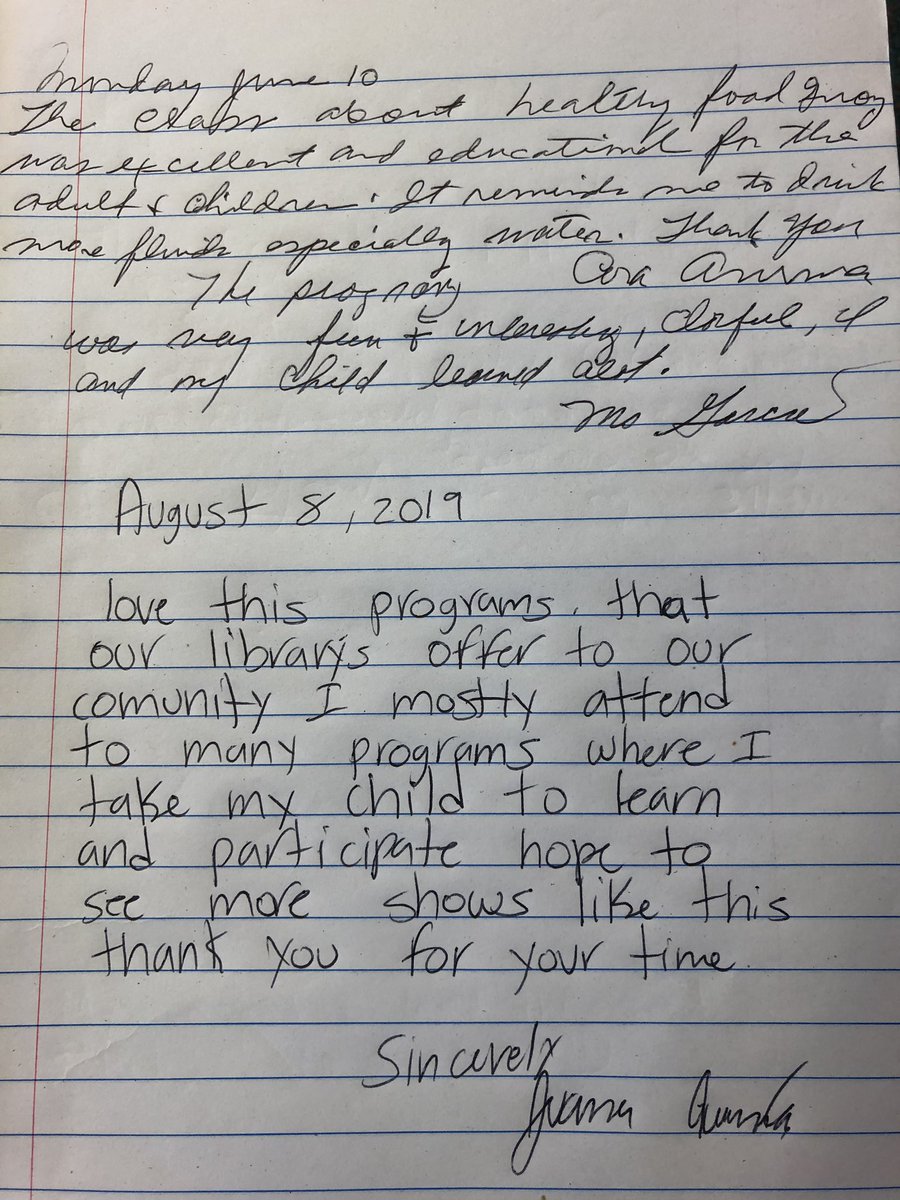 Monday June 10
The class about healthy food
was excellent and educational for the
adult & children. It reminds me to drink
more fluids especially water. Thank you
The program
was very fun & interesting, colorful,
and my child learned alot.
Ms Garcia
August 8, 2019
love this programs. that
our library's offer to our
comunity I mostly attend
to many programs where I
take my child to learn
and participate hope to
see more shows like this
thank you for your time.
Sincerely